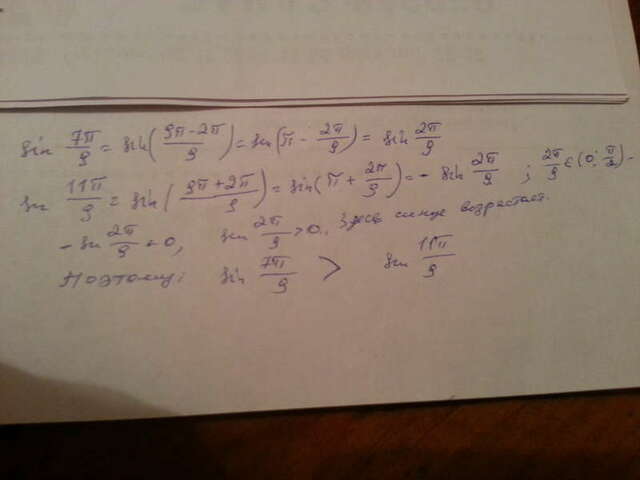 sin 7π/9 = sin(9π-2π/9) = sin(π - 2π/9) = sin 2π/9
sin 11π/9 = sin(9π+2π/9) = sin(π + 2π/9) = - sin 2π/9 ; 2π/9 ∈ (0; π/2) -
- sin 2π/9 < 0, sin 2π/9 > 0. Здесь синус возрастает.
Поэтому: sin 7π/9 > sin 11π/9